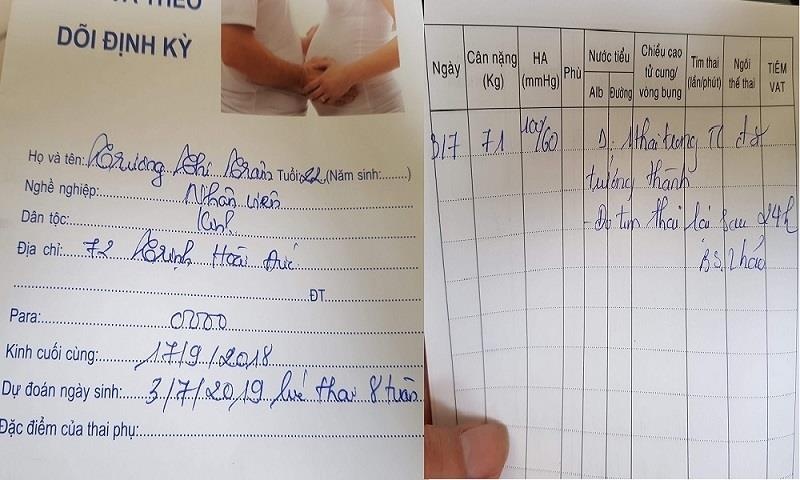 THEO
DÕI ĐỊNH KỲ
Họ và tên: Trương Thị Trân Tuổi: 22 (Năm sinh:........)
Nghề nghiệp: Nhân viên
Dân tộc: Kinh
Địa chỉ: 72 Trịnh Hoài Đức
ĐT
Para: 0000
Kinh cuối cùng: 17/9/2018
Dự đoán ngày sinh: 3/7/2019 lúc thai 8 tuần
Đặc điểm của thai phụ:
Ngày Cân nặng (Kg) HA (mmHg) Phù Nước tiểu Alb Đường Chiều cao tử cung/ vòng bụng Tim thai (lần/phút) Ngôi thế thai TIÊM VAT
3/7 71 100/60 D: 1 thai trong TC đã
trưởng thành
- Đo tim thai lại sau 24h
BS. Thảo